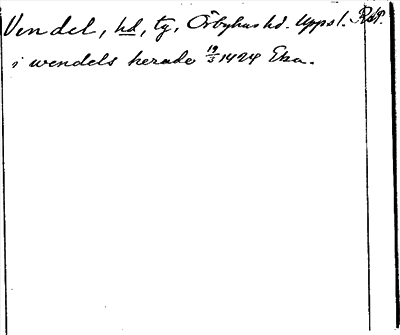 Vendel, hd, tg, Örbyhus hd. Upps l. RAP.
i wendels herade 19/5 1424 Eka.